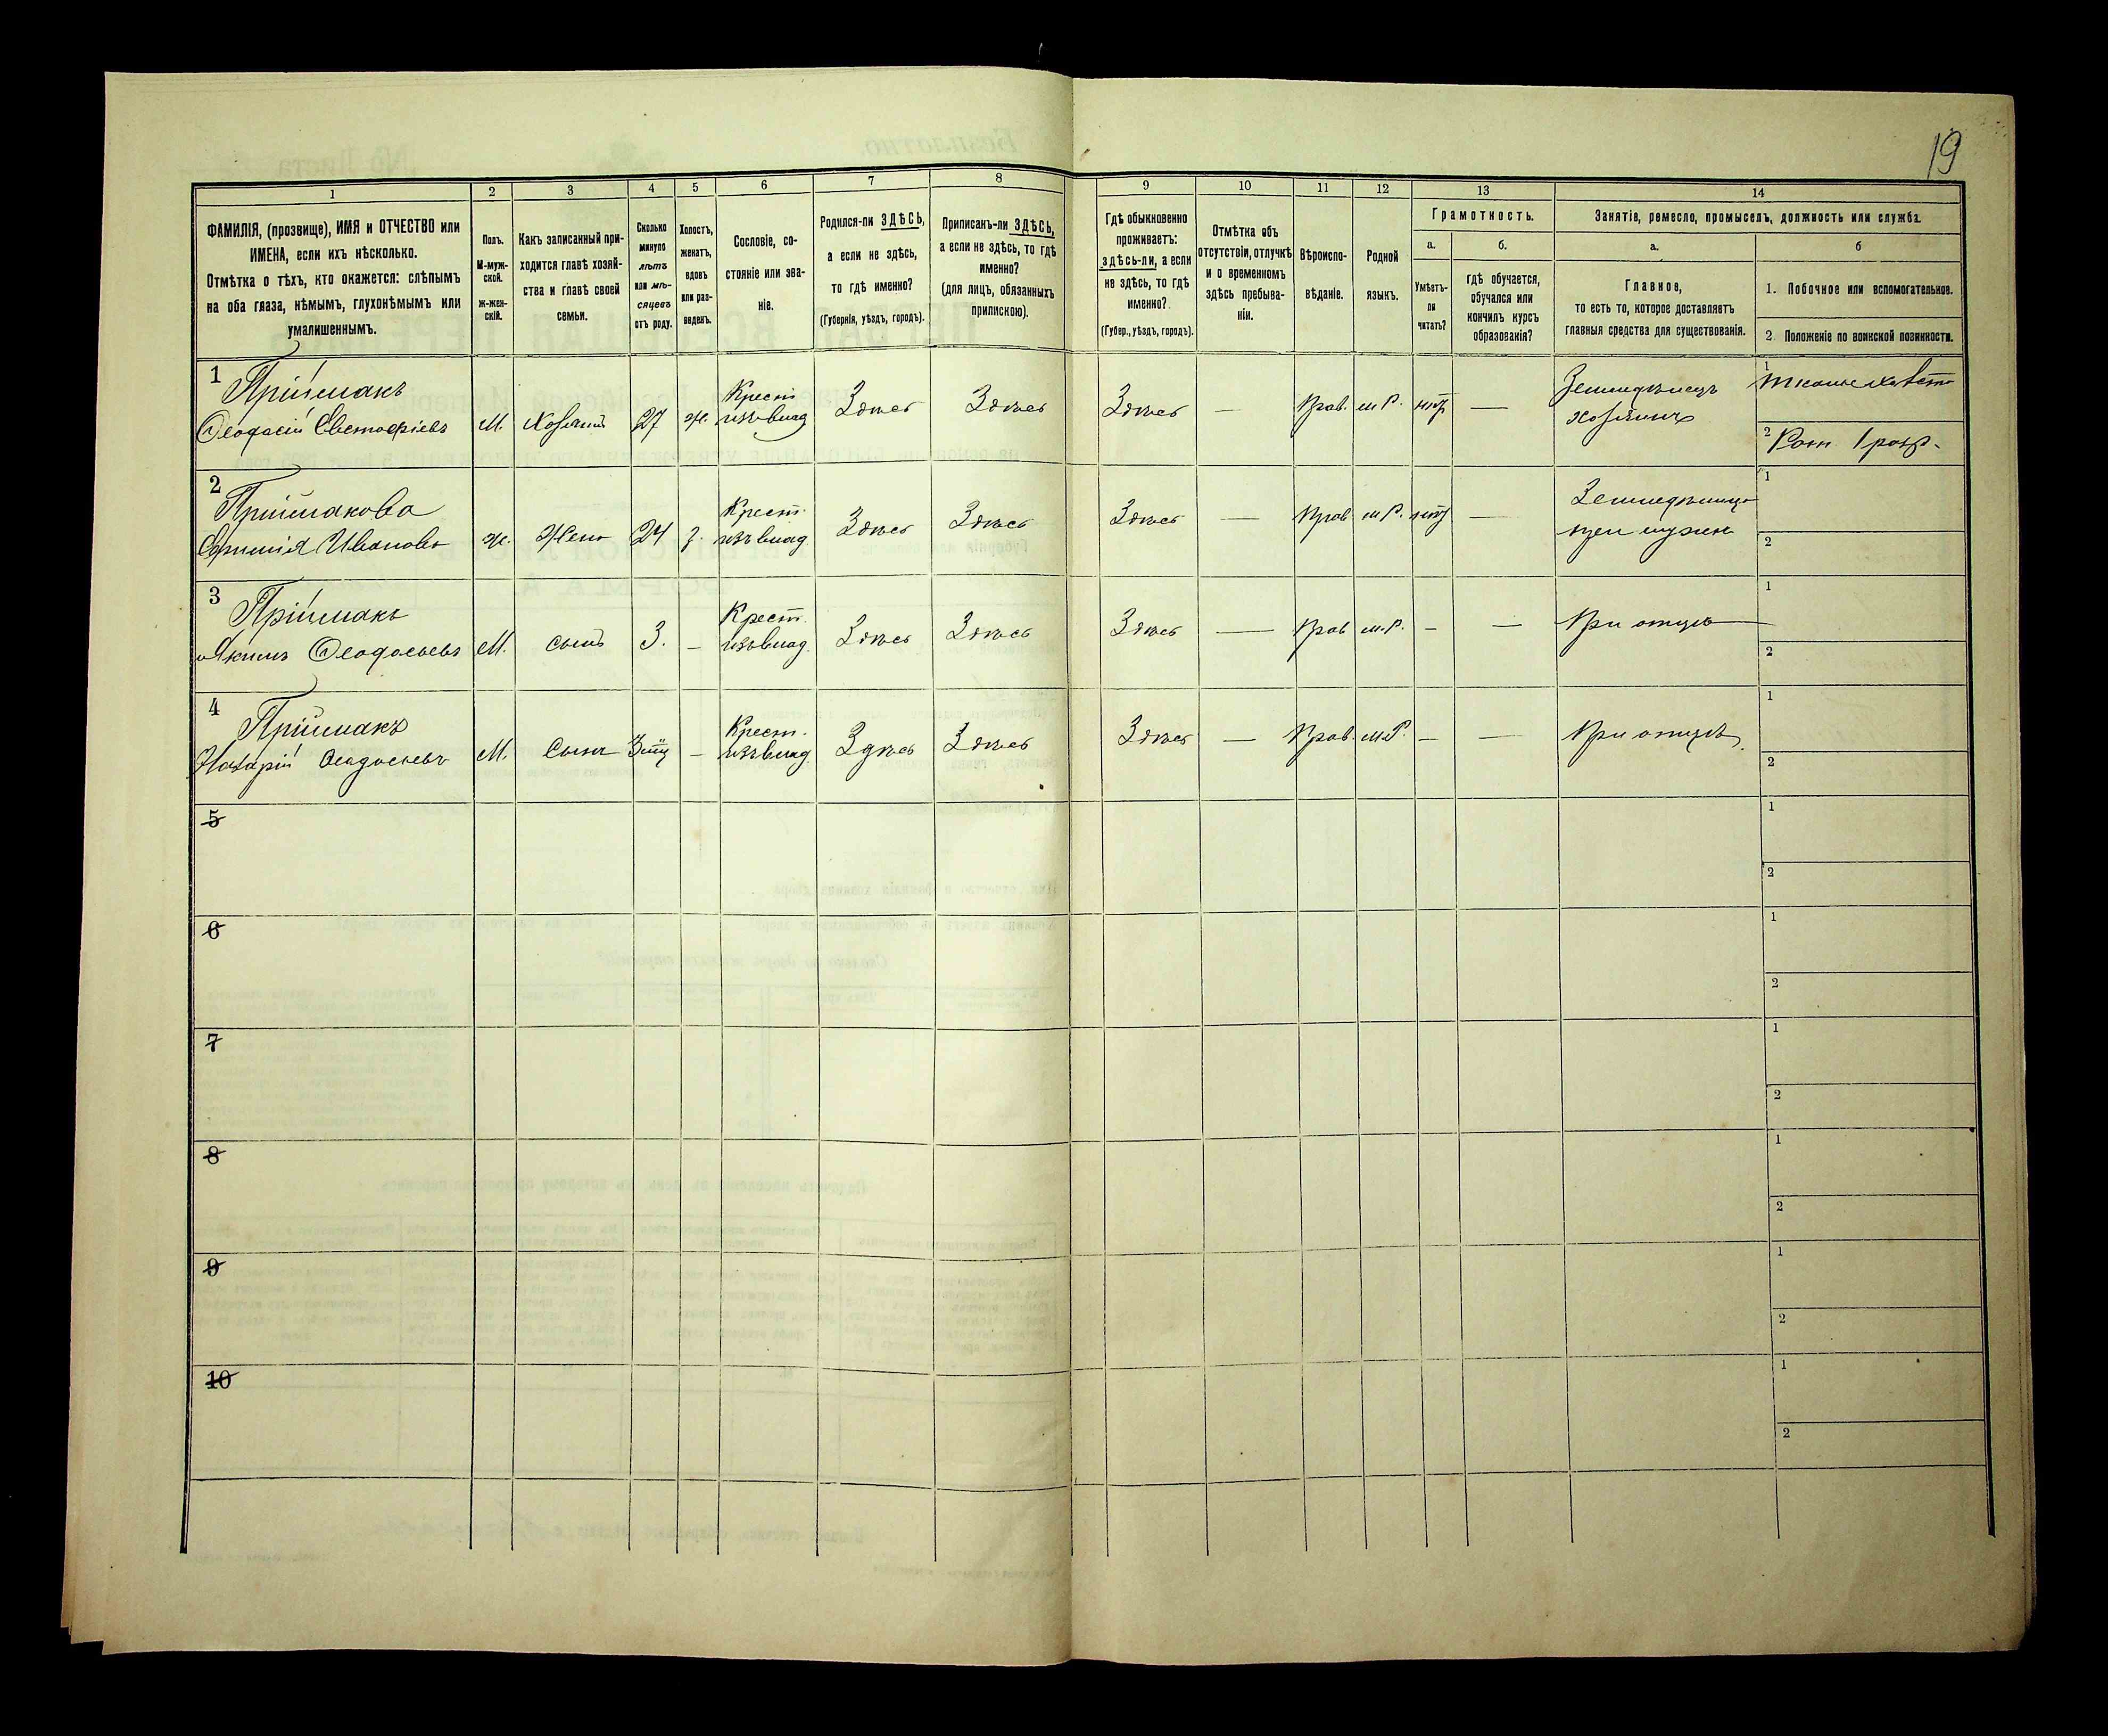 19
1
2
3
4
5
6
7
8
9
10
11
12
13
14
ФАМИЛІЯ, (прозвище), ИМЯ и ОТЧЕСТВО или
ИМЕНА, если ихъ нѣсколько.
Отмѣтка о тѣхъ, кто окажется: слѣпымъ
на оба глаза, нѣмымъ, глухонѣмымъ или
умалишеннымъ.
Полъ.
М-муж-
ской.
ж-жен-
скій.
Какъ записанный при-
ходится главѣ хозяй-
ства и главѣ своей
семьи.
Сколько
минуло
лѣтъ
или мѣ-
сяцевъ
отъ роду.
Холостъ,
женатъ,
вдовъ
или раз-
веденъ.
Сословіе, со-
стояніе или зва-
ніе.
Родился-ли ЗДѢСЬ,
а если не здѣсь,
то гдѣ именно?
(Губернія, уѣздъ, городъ).
Приписанъ-ли ЗДѢСЬ,
а если не здѣсь, то гдѣ
именно?
(для лицъ, обязанныхъ
припискою).
Гдѣ обыкновенно
проживаетъ:
здѣсь-ли, а если
не здѣсь, то гдѣ
именно?
(Губер., уѣздъ, городъ).
Отмѣтка объ
отсутствіи, отлучкѣ
и о временномъ
здѣсь пребыва-
ніи.
Вѣроиспо-
вѣданіе.
Родной
языкъ.
Грамотность.
а.
б.
Умѣетъ-
ли
читать?
гдѣ обучается,
обучался или
кончилъ курсъ
образованія?
Занятіе, ремесло, промыселъ, должность или служба.
а.
б
Главное,
то есть то, которое доставляетъ
главныя средства для существованія.
1. Побочное или вспомогательное.
2. Положеніе по воинской повинности.
1
Пріймакъ
Ѳеодосій
М.
Хозяинъ
27
ж.
Крест
изъ влад
Здѣсь
Здѣсь
Здѣсь
—
Прав.
м Р.
нѣтъ
—
Земледѣлецъ
хозяинъ
1
2
1 разр.
2
Пріймакова
Ивановна
ж.
Жена
24
з.
Крест.
изъ влад
Здѣсь
Здѣсь
Здѣсь
—
Прав
м Р.
нѣтъ
—
при мужѣ
1
2
3
Пріймакъ
Якимъ Ѳеодосьевъ
М.
сынъ
3.
–
Крест.
изъ влад.
Здѣсь
Здѣсь
Здѣсь
—
Прав
м.Р.
–
—
При отцѣ
1
2
4
Пріймакъ
Назарій Ѳеодосьевъ
М.
Сынъ
–
Крест.
изъ влад
Здѣсь
Здѣсь
Здѣсь
—
Прав.
м.Р.
–
—
При отцѣ
1
2
5
1
2
6
1
2
7
1
2
8
1
2
9
1
2
10
1
2